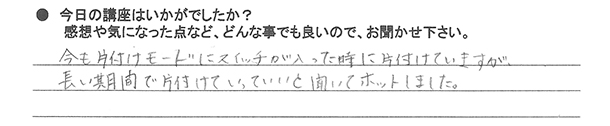 ● 今日の講座はいかがでしたか？
感想や気になった点など、どんな事でも良いので、お聞かせ下さい。
今も片付けモードにスイッチが入った時に片付けていますが、
長い期間で片付けていっていいと聞いてホットしました。